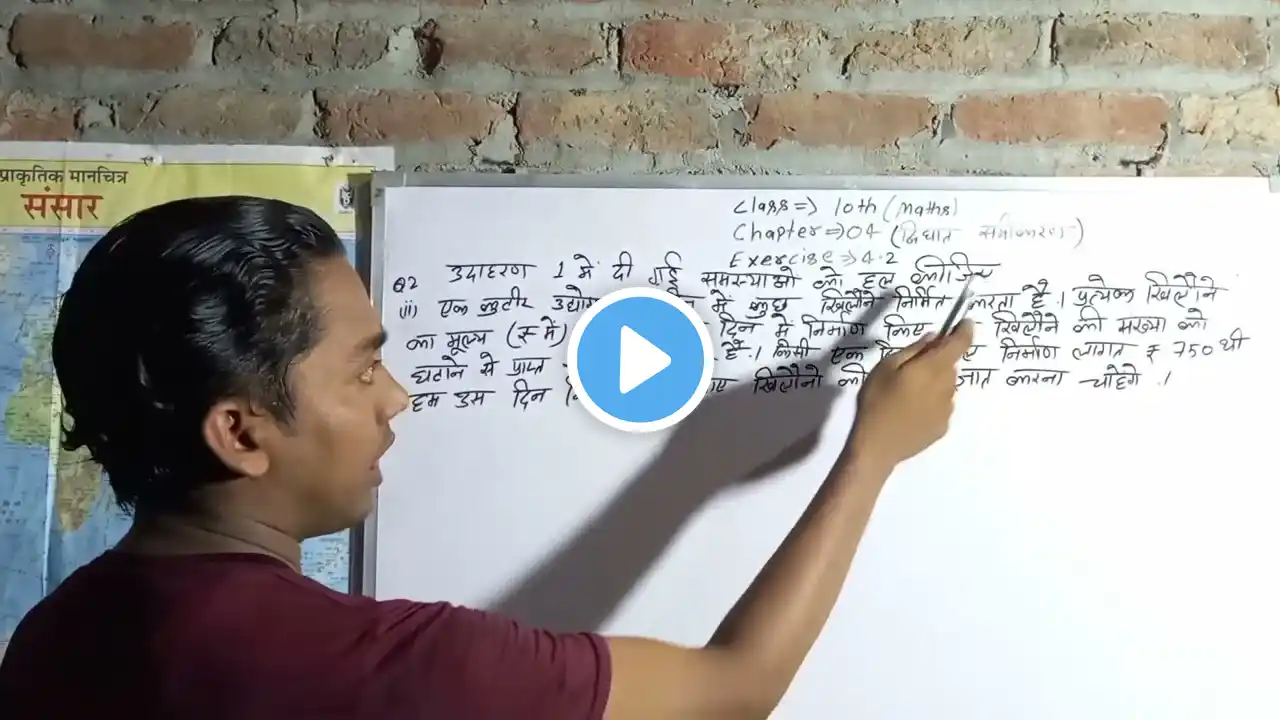 प्राकृतिक मानचित्र
संसार
Class => 10th (Maths)
Chapter => 04 (द्विघात समीकरण)
Exercise => 4.2
Q2 उदाहरण 1 में दी गई समस्याओ को हल कीजिए
(ii) एक कुटीर उद्योग में कुछ खिलौने निर्मित करता है । प्रत्येक खिलौने
का मूल्य (रू में) दिन में निर्माण किए खिलौने की संख्या को
घटाने से प्राप्त है । किसी एक निर्माण लागत ₹ 750 थी
हम उस दिन खिलौनो की ज्ञात करना चाहेंगे ।